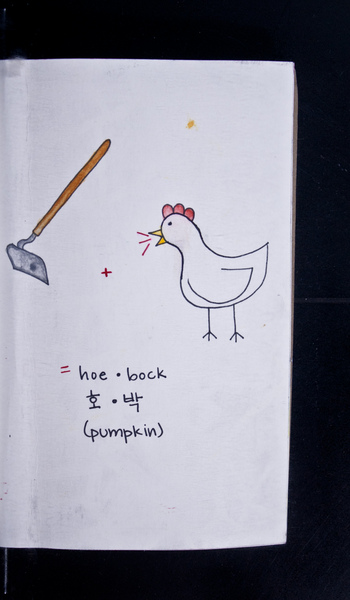 +
= hoe • bock
호 • 박
(pumpkin)